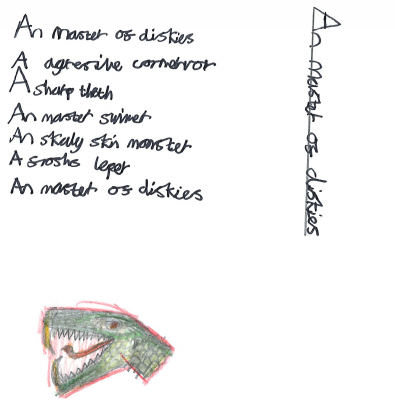 An master of diskies
A agresive cornervor
A sharp theth
An master swimer
An skaly skin monster
A leper
An master of diskies
An master of diskies